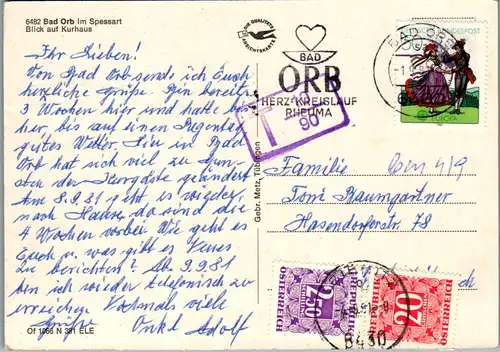 6482 Bad Orb im Spessart
Blick auf Kurhaus
Ihr Lieben!
Von Bad Orb sende ich Euch
herzliche Grüße. Bin bereits
3 Wochen hier und hatte bis-
her, bis auf einen Regentag
gutes Wetter. Hier in Bad
Orb hat sich viel zu Gun-
sten der Kurgäste geändert
Am 8.9.81 geht es wieder
nach Hause, da sind die
4 Wochen vorbei. Wie geht es
Euch u. was gibt es Neues
zu berichten? Ab 9.9.81
bin ich wieder telefonisch zu
erreichen. Nochmals viele
Grüße Onkl Adolf
Of 1066 N 381 ELE
Gebr. Metz, Tübingen
BAD
ORB
HERZ-KREISLAUF
RHEUMA
BAD ORB
T
90
BUNDESPOST
EUROPA
Familie
Toni Baumgartner
Hasendorferstr. 78
REPUBLIK
ÖSTERREICH
2.50
REPUBLIK
ÖSTERREICH
20
8430